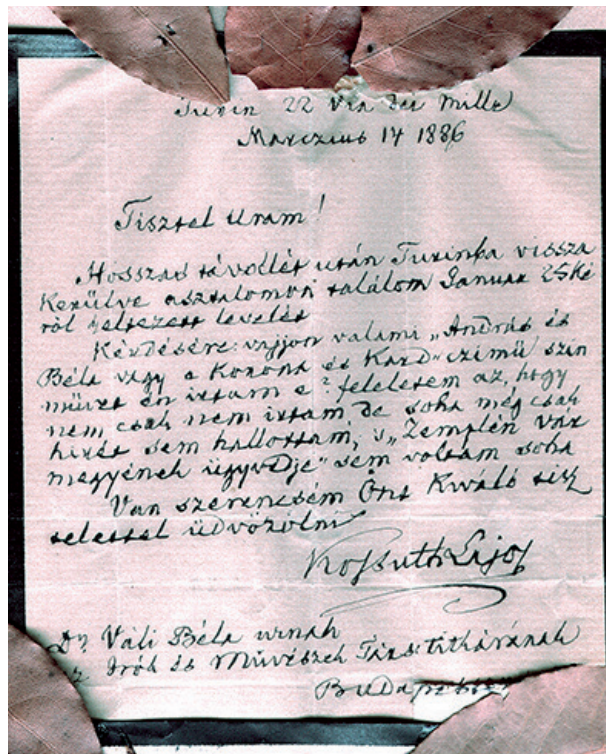 Turin 22 Via dei Mille
Marczius 14 1886
Tisztel Uram!
Hosszas távollét után Turinba vissza
kerülve asztalomon találom Januar 25ké
ről keltezett levelét
Kérdésére: vajjon valami „András és
Béla vagy a Korona és Kard" czimű szin
művet én irtam e? feleletem az, hogy
nem csak nem irtam de soha még csak
hirét sem hallottam, 's „Zemplén vár
megyének ügyvédje" sem voltam soha
Van szerencsém Önt kiváló tisz
telettel üdvözölni
Kossuth Lajos
Dr. Váli Béla urnak
Irók és Művészek Társ. titkárának
Budapest